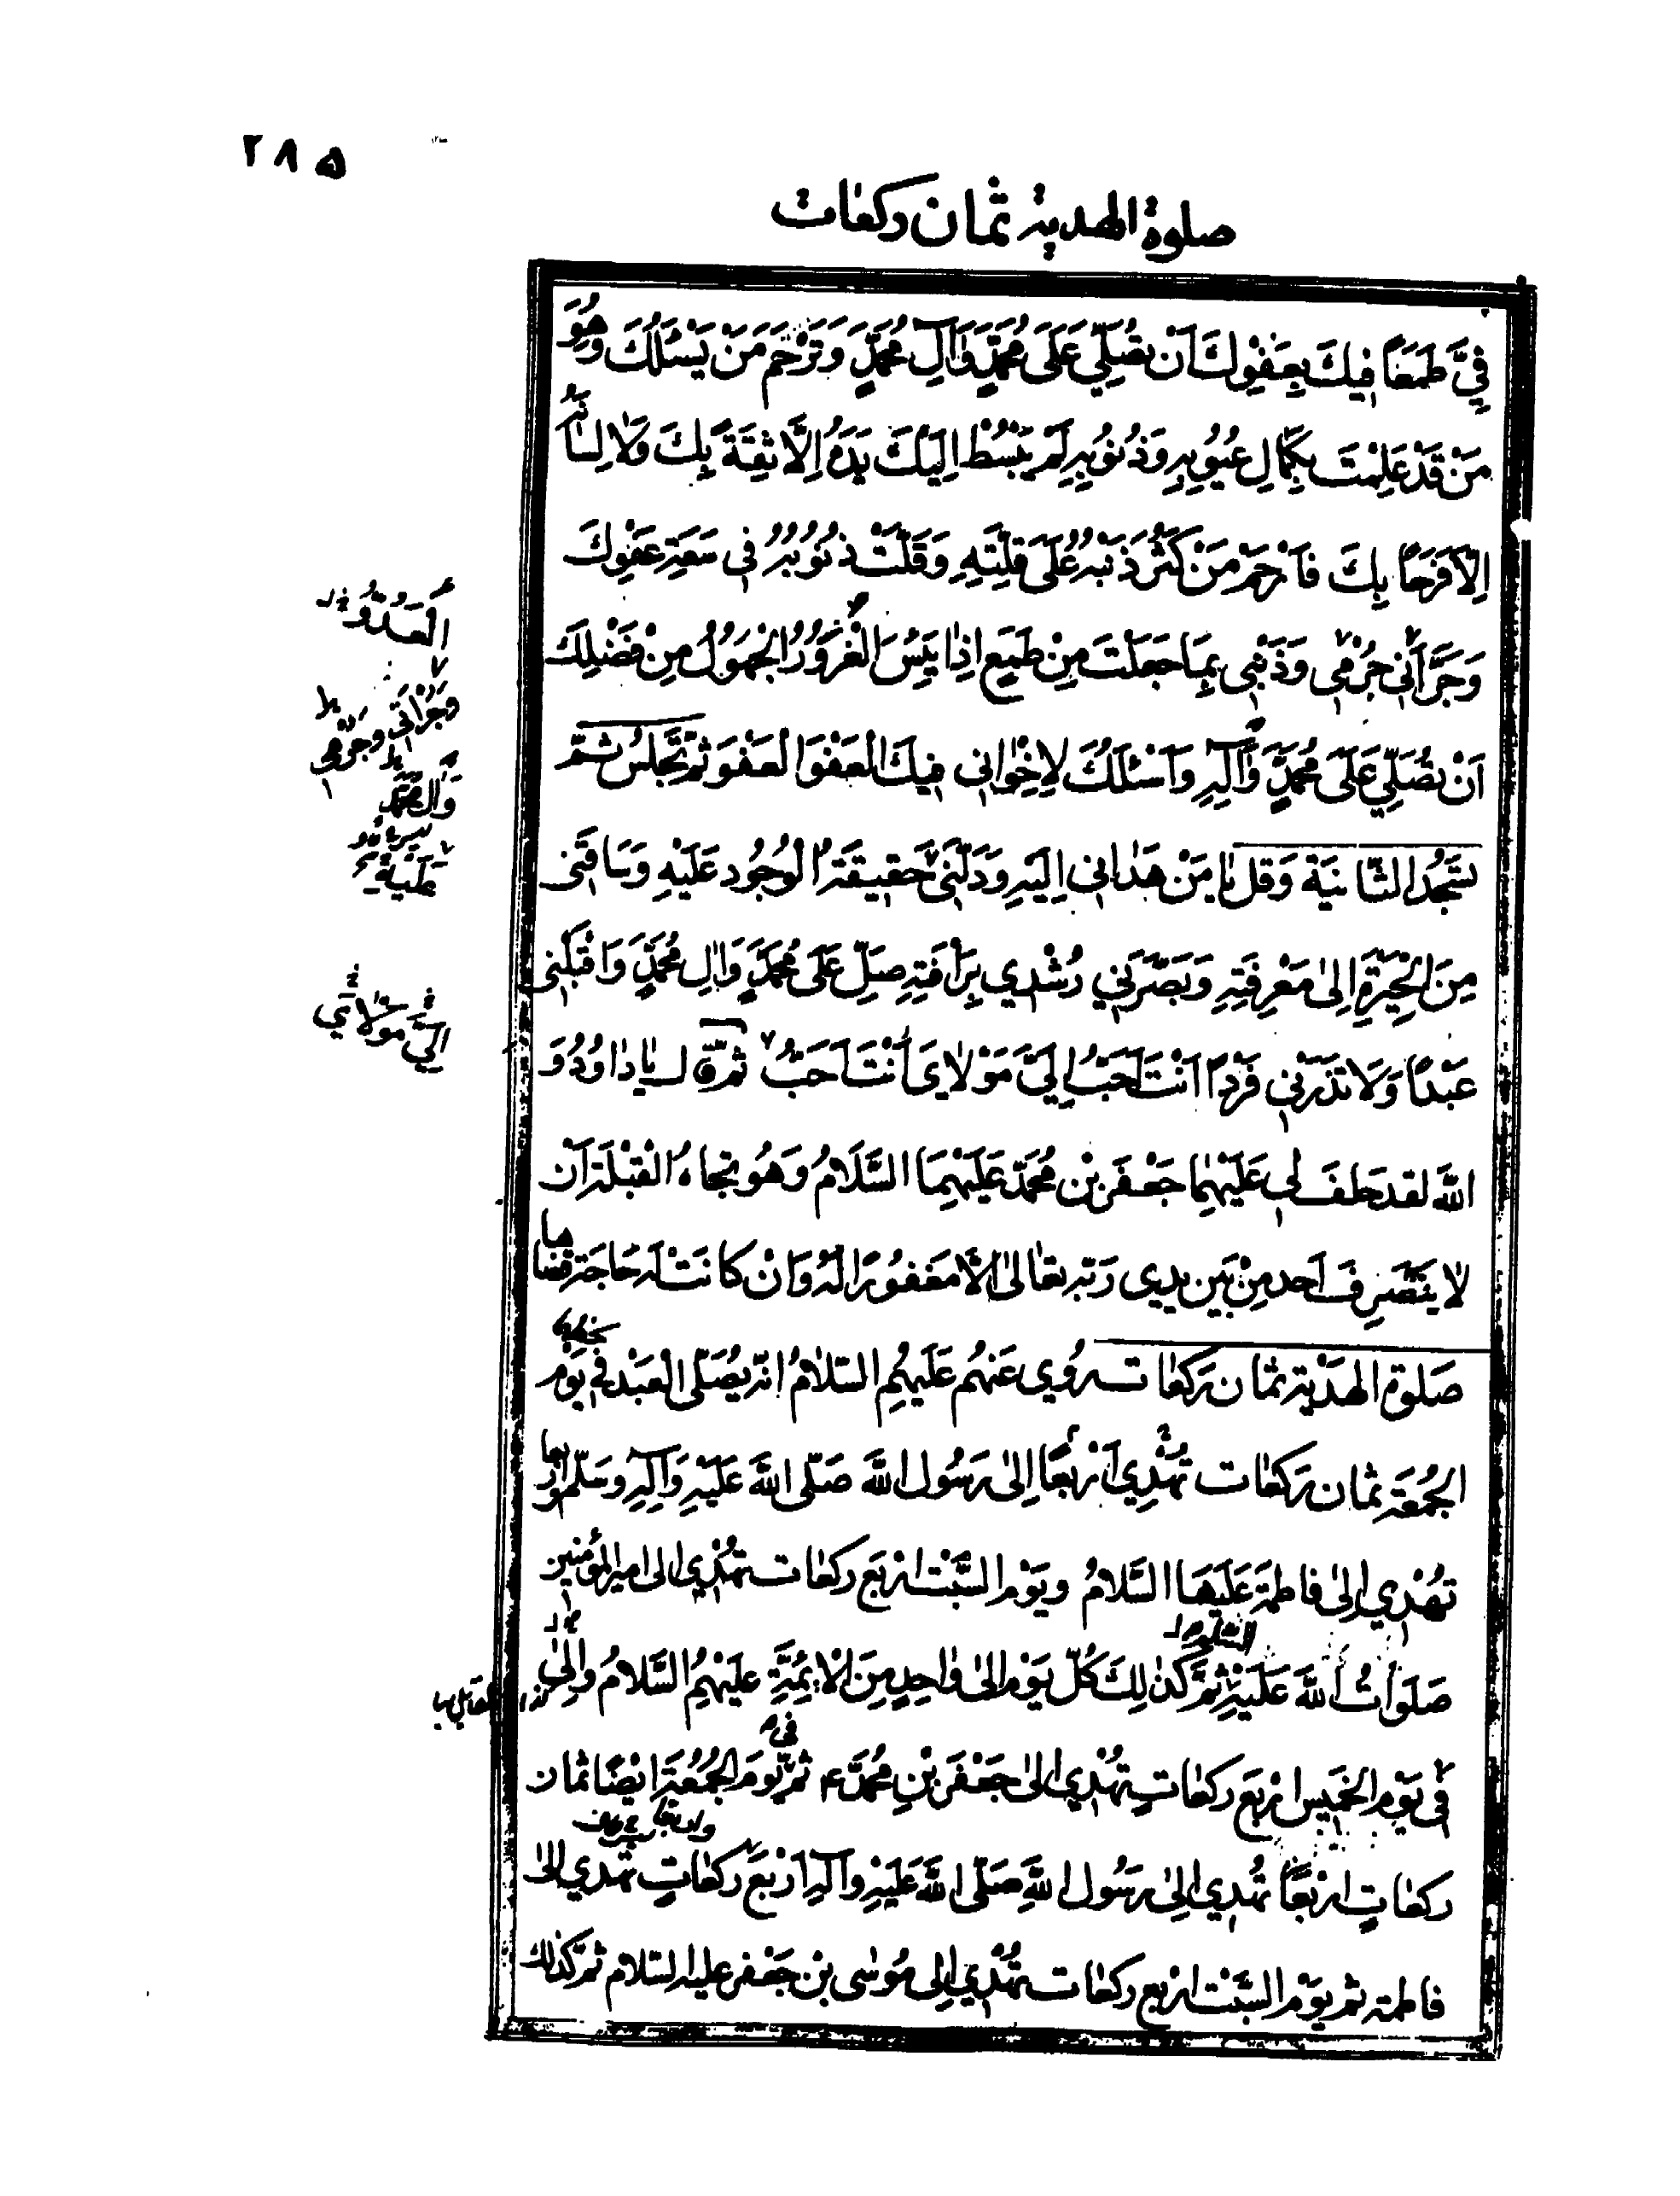 ۲۸۵
صلوة الهدية ثمان ركعات
فِيَّ طَمَعًا فِيكَ بِعَفْوِكَ اَنْ تُصَلِّيَ عَلَى مُحَمَّدٍ وَآلِ مُحَمَّدٍ وَتَرْحَمَ مَنْ يَسْئَلُكَ وَهُوَ
مَنْ قَدْ عَلِمْتَ بِكَمَالِ عُيُوبِهِ وَذُنُوبِهِ لَمْ يَبْسُطْ اِلَيْكَ يَدَهُ اِلَّا ثِقَةً بِكَ وَلَا لِسَانَهُ
اِلَّا فَرَحًا بِكَ فَارْحَمْ مَنْ كَثُرَ ذَنْبُهُ عَلَى قِلَّتِهِ وَقَلَّتْ ذُنُوبُهُ فِي سَعَةِ عَفْوِكَ
وَجَرَّأَنِي جُرْمِي وَذَنْبِي بِمَا جَعَلْتَ مِنْ طَمَعٍ اِذَا يَئِسَ الْغَرُورُ الْجَهُولُ مِنْ فَضْلِكَ
اَنْ تُصَلِّيَ عَلَى مُحَمَّدٍ وَآلِهِ وَاَسْئَلُكَ لِاِخْوَانِي فِيكَ الْعَفْوَ الْعَفْوَ ثُمَّ تَجْلِسُ ثُمَّ
تَسْجُدُ الثَّانِيَةَ وَقُل يَا مَنْ هَدَانِي اِلَيْهِ وَدَلَّنِي حَقِيقَةُ الْوُجُودِ عَلَيْهِ وَسَاقَنِي
مِنَ الْحَيْرَةِ اِلَى مَعْرِفَتِهِ وَبَصَّرَنِي رُشْدِي بِرَأْفَتِهِ صَلِّ عَلَى مُحَمَّدٍ وَآلِ مُحَمَّدٍ وَاقْبَلْنِي
عَبْدًا وَلَا تَذَرْنِي فَرْدًا اَنْتَ اَحَبُّ اِلَيَّ مَوْلَايَ اَنْتَ اَحَبُّ ثم قال يا داوُدُ وَ
اللهَ لقد حلف لي عَلَيْهِمَا جَعْفَرُ بْنُ مُحَمَّدٍ عَلَيْهِمَا السَّلَامُ وَهُوَ تجاهُ الْقِبْلَةِ اَن
لا يَنْصَرِفَ اَحد مِنْ بَيْنِ يدي رَبِّهِ تعالى اِلَّا مَغْفُورًا لَهُ وَاِنْ كَانَتْ لَهُ حَاجَة قضاها
صَلوة الهَدْيَة ثمان رَكعات رُوِيَ عَنْهُم عَلَيْهِم السَّلَامُ انّه يُصَلّى الْعَبْد فِي يَوْم
الجُمُعَة ثمان رَكعات تُهْدِي اَرْبَعًا اِلى رَسُولِ اللهِ صَلَّى اللهُ عَلَيْهِ وَآلِهِ وسَلّم واَرْبعا
تُهْدِي اِلى فاطِمَة عَلَيْهَا السَّلَامُ ويَوْم السَّبْت اَرْبَع ركعات تُهْدِي الى امير المؤمنين
صَلَوَاتُ اللهِ عَلَيْهِ ثُمَّ كَذلِكَ كُلّ يَوْم اِلى وَاحِدٍ مِنَ الْاَئِمَّةِ عَلَيْهِمُ السَّلَامُ والى
فِي يَوْم الخَمِيسِ اَرْبَع ركعاتٍ تُهْدِي اِلى جَعْفَرِ بْنِ مُحَمَّدٍ ع ثُمَّ يَوْمَ الجُمُعَةِ اَيْضًا ثمان
ركعاتٍ اَرْبَعًا تُهْدِي اِلى رَسُولِ اللهِ صَلَّى اللهُ عَلَيْهِ وآلِهِ اَرْبَعَ ركعاتٍ تُهْدي اِلى
فاطمة ثم يَوْم السَّبْت اَرْبَع ركعات تُهْدِي اِلى مُوسَى بن جَعْفر عليه السّلام ثم كذلك
وَجَرَّأَنِي وَجُرْمِي
وَآلِ مُحَمَّد
عَلَيْهِ
اِلَيَّ مَوْلَايَ